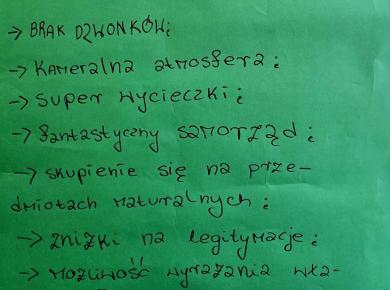 → BRAK DZWONKÓW;
→ Kameralna atmosfera;
→ super wycieczki;
→ fantastyczny samorząd;
→ skupienie się na prze-
dmiotach maturalnych;
→ zniżki na legitymacje;
→ możliwość wyrażania wła-